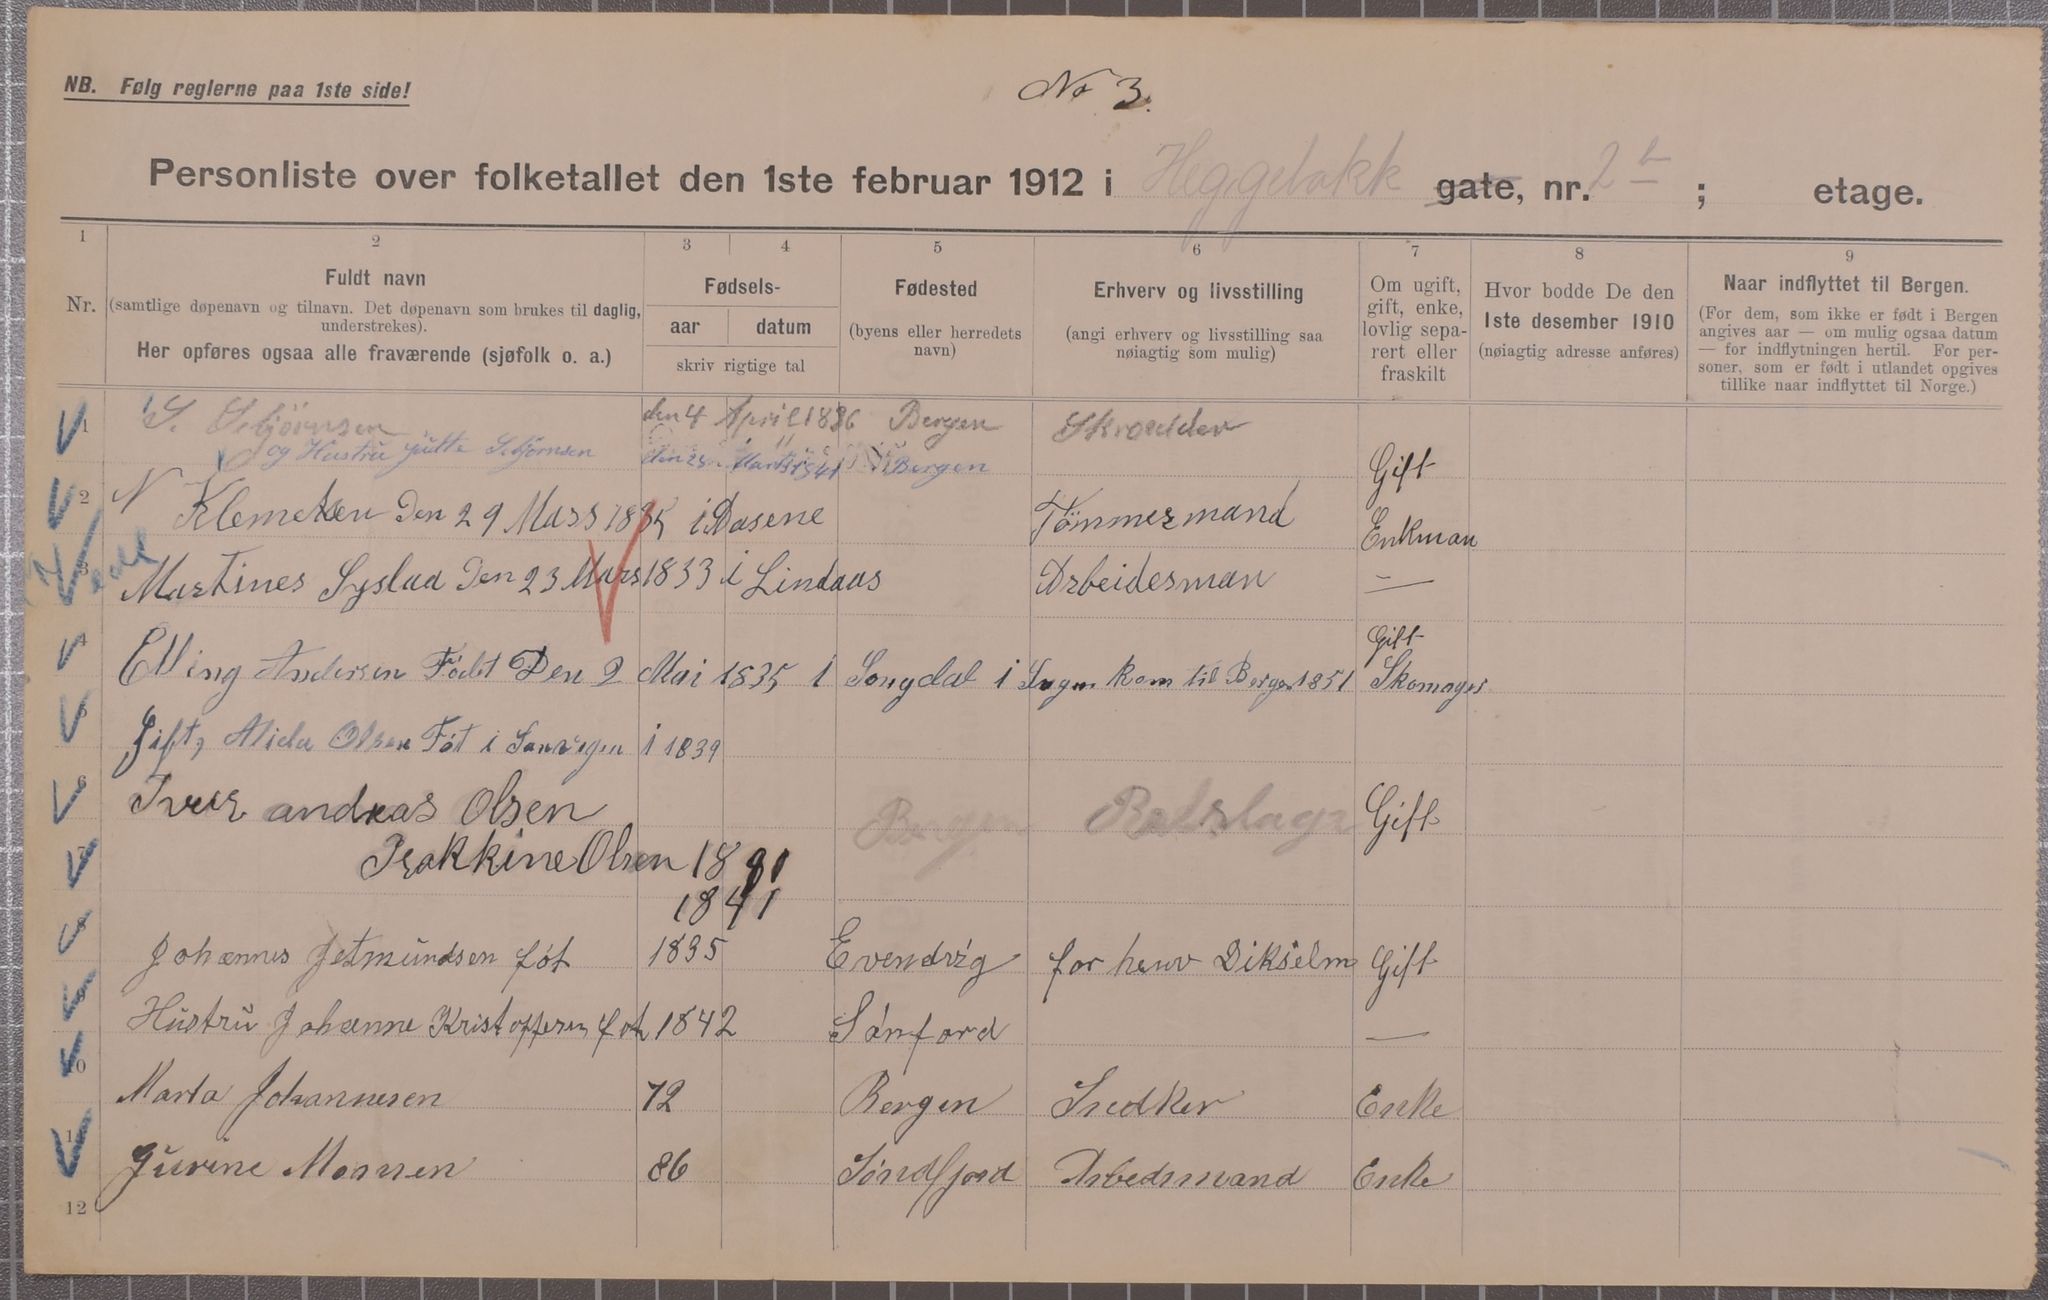 NB. Følg reglerne paa 1ste side!
No 3.
Personliste over folketallet den 1ste februar 1912 i Heggebakk gate, nr. 2 b ; etage.
1 2 3 4 5 6 7 8 9
Nr.
Fuldt navn
(samtlige døpenavn og tilnavn. Det døpenavn som brukes til daglig, understrekes).
Her opføres ogsaa alle fraværende (sjøfolk o. a.)
Fødsels-
aar datum
skriv rigtige tal
Fødested
(byens eller herredets navn)
Erhverv og livsstilling
(angi erhverv og livsstilling saa nøiagtig som mulig)
Om ugift, gift, enke, lovlig sepa-rert eller fraskilt
Hvor bodde De den 1ste desember 1910
(nøiagtig adresse anføres)
Naar indflyttet til Bergen.
(For dem, som ikke er født i Bergen angives aar — om mulig ogsaa datum — for indflytningen hertil. For per-soner, som er født i utlandet opgives tillike naar indflyttet til Norge.)
1 S. Sebjörnsen den 4 April 1836 Bergen Skrædder
og Hustru Jutte Sebjörnsen den 25 Marts 1841 i Bergen Gift
2 N Klemetsen Den 29 Mars 1835 i Aasene Tömmermand Enkman
3 Martines Syslaa Den 23 Mars 1833 i Lindaas Arbeidesman —
4 Elling Andersen Födt Den 2 Mai 1835 i Songdal i Sogn kom til Bergen 1851 Gift Skomager
5 Gift, Alida Olsen Föt i i 1839
6 Iver andreas Olsen Bergen Gift
7 Olsen 18 91
1841
8 Johannes Jetmundsen föt 1835 Evendvig for henv Gift
9 Hustru Johanne Kristoffersen föt 1842 Sönford —
10 Marta Johannesen 72 Bergen Snedker Enke
11 Gurine Monsen 86 Söndfjord Arbedsmand Enke
12